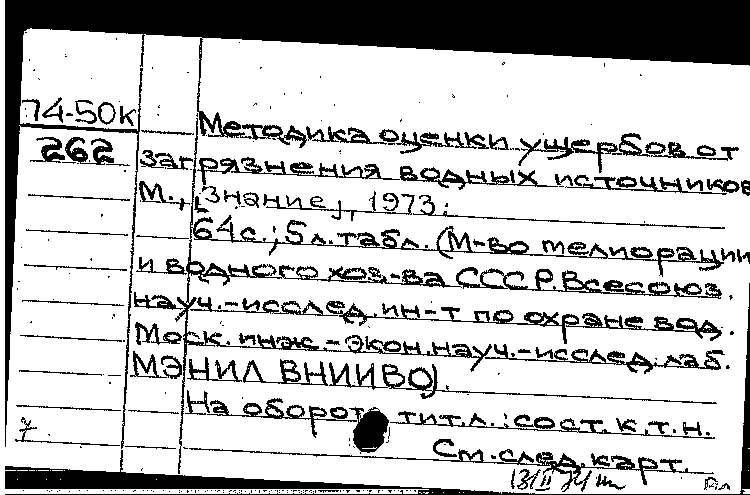 74-50к
262
Методика оценки ущербов от
загрязнения водных источников
М., [Знание], 1973.
64с.; 5л.табл. (М-во мелиорации
и водного хоз-ва СССР. Всесоюз.
науч.-исслед. ин-т по охране вод.
Моск. инж.-экон. науч.-исслед. лаб.
МЭНИЛ ВНИИВО).
На обороте тит.л.: сост. к.т.н.
См. след. карт.
7
13/II 74